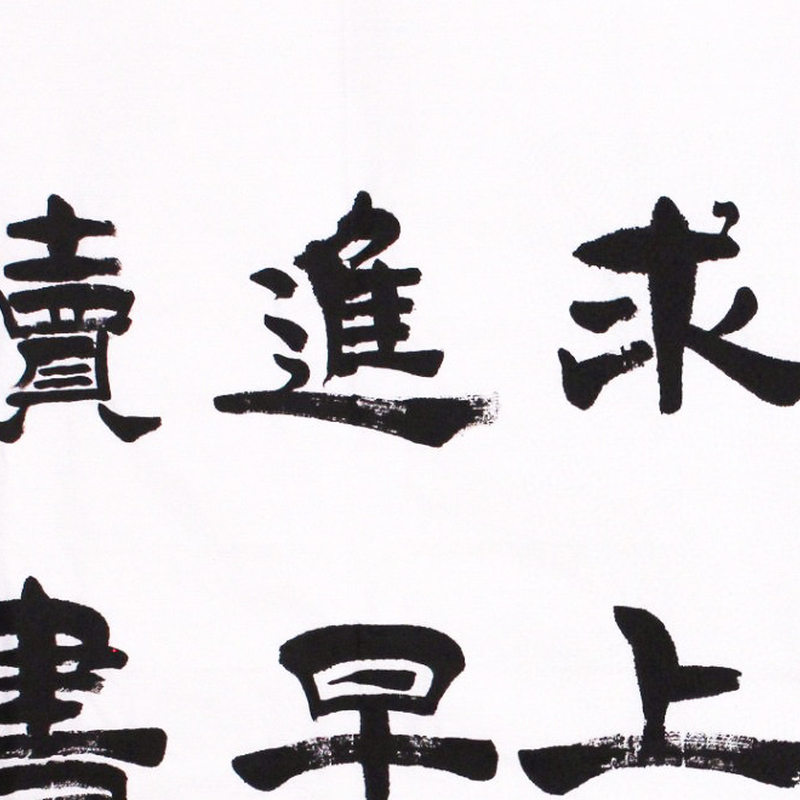 求上
進早
讀書